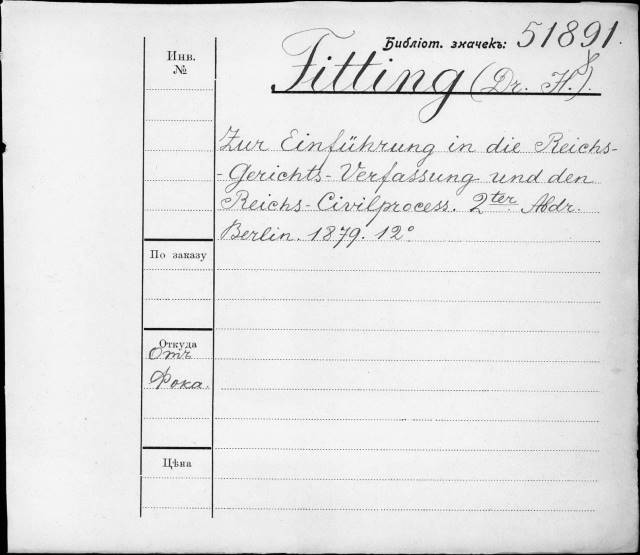 Библіот. значекъ: 51891.
Инв.
№
Fitting (Dr. H.).
Zur Einführung in die Reichs-
-Gerichts-Verfassung und den
Reichs-Civilprocess. 2ter Abdr.
Berlin. 1879. 12°
По заказу
Откуда
Отъ
Фока.
Цѣна